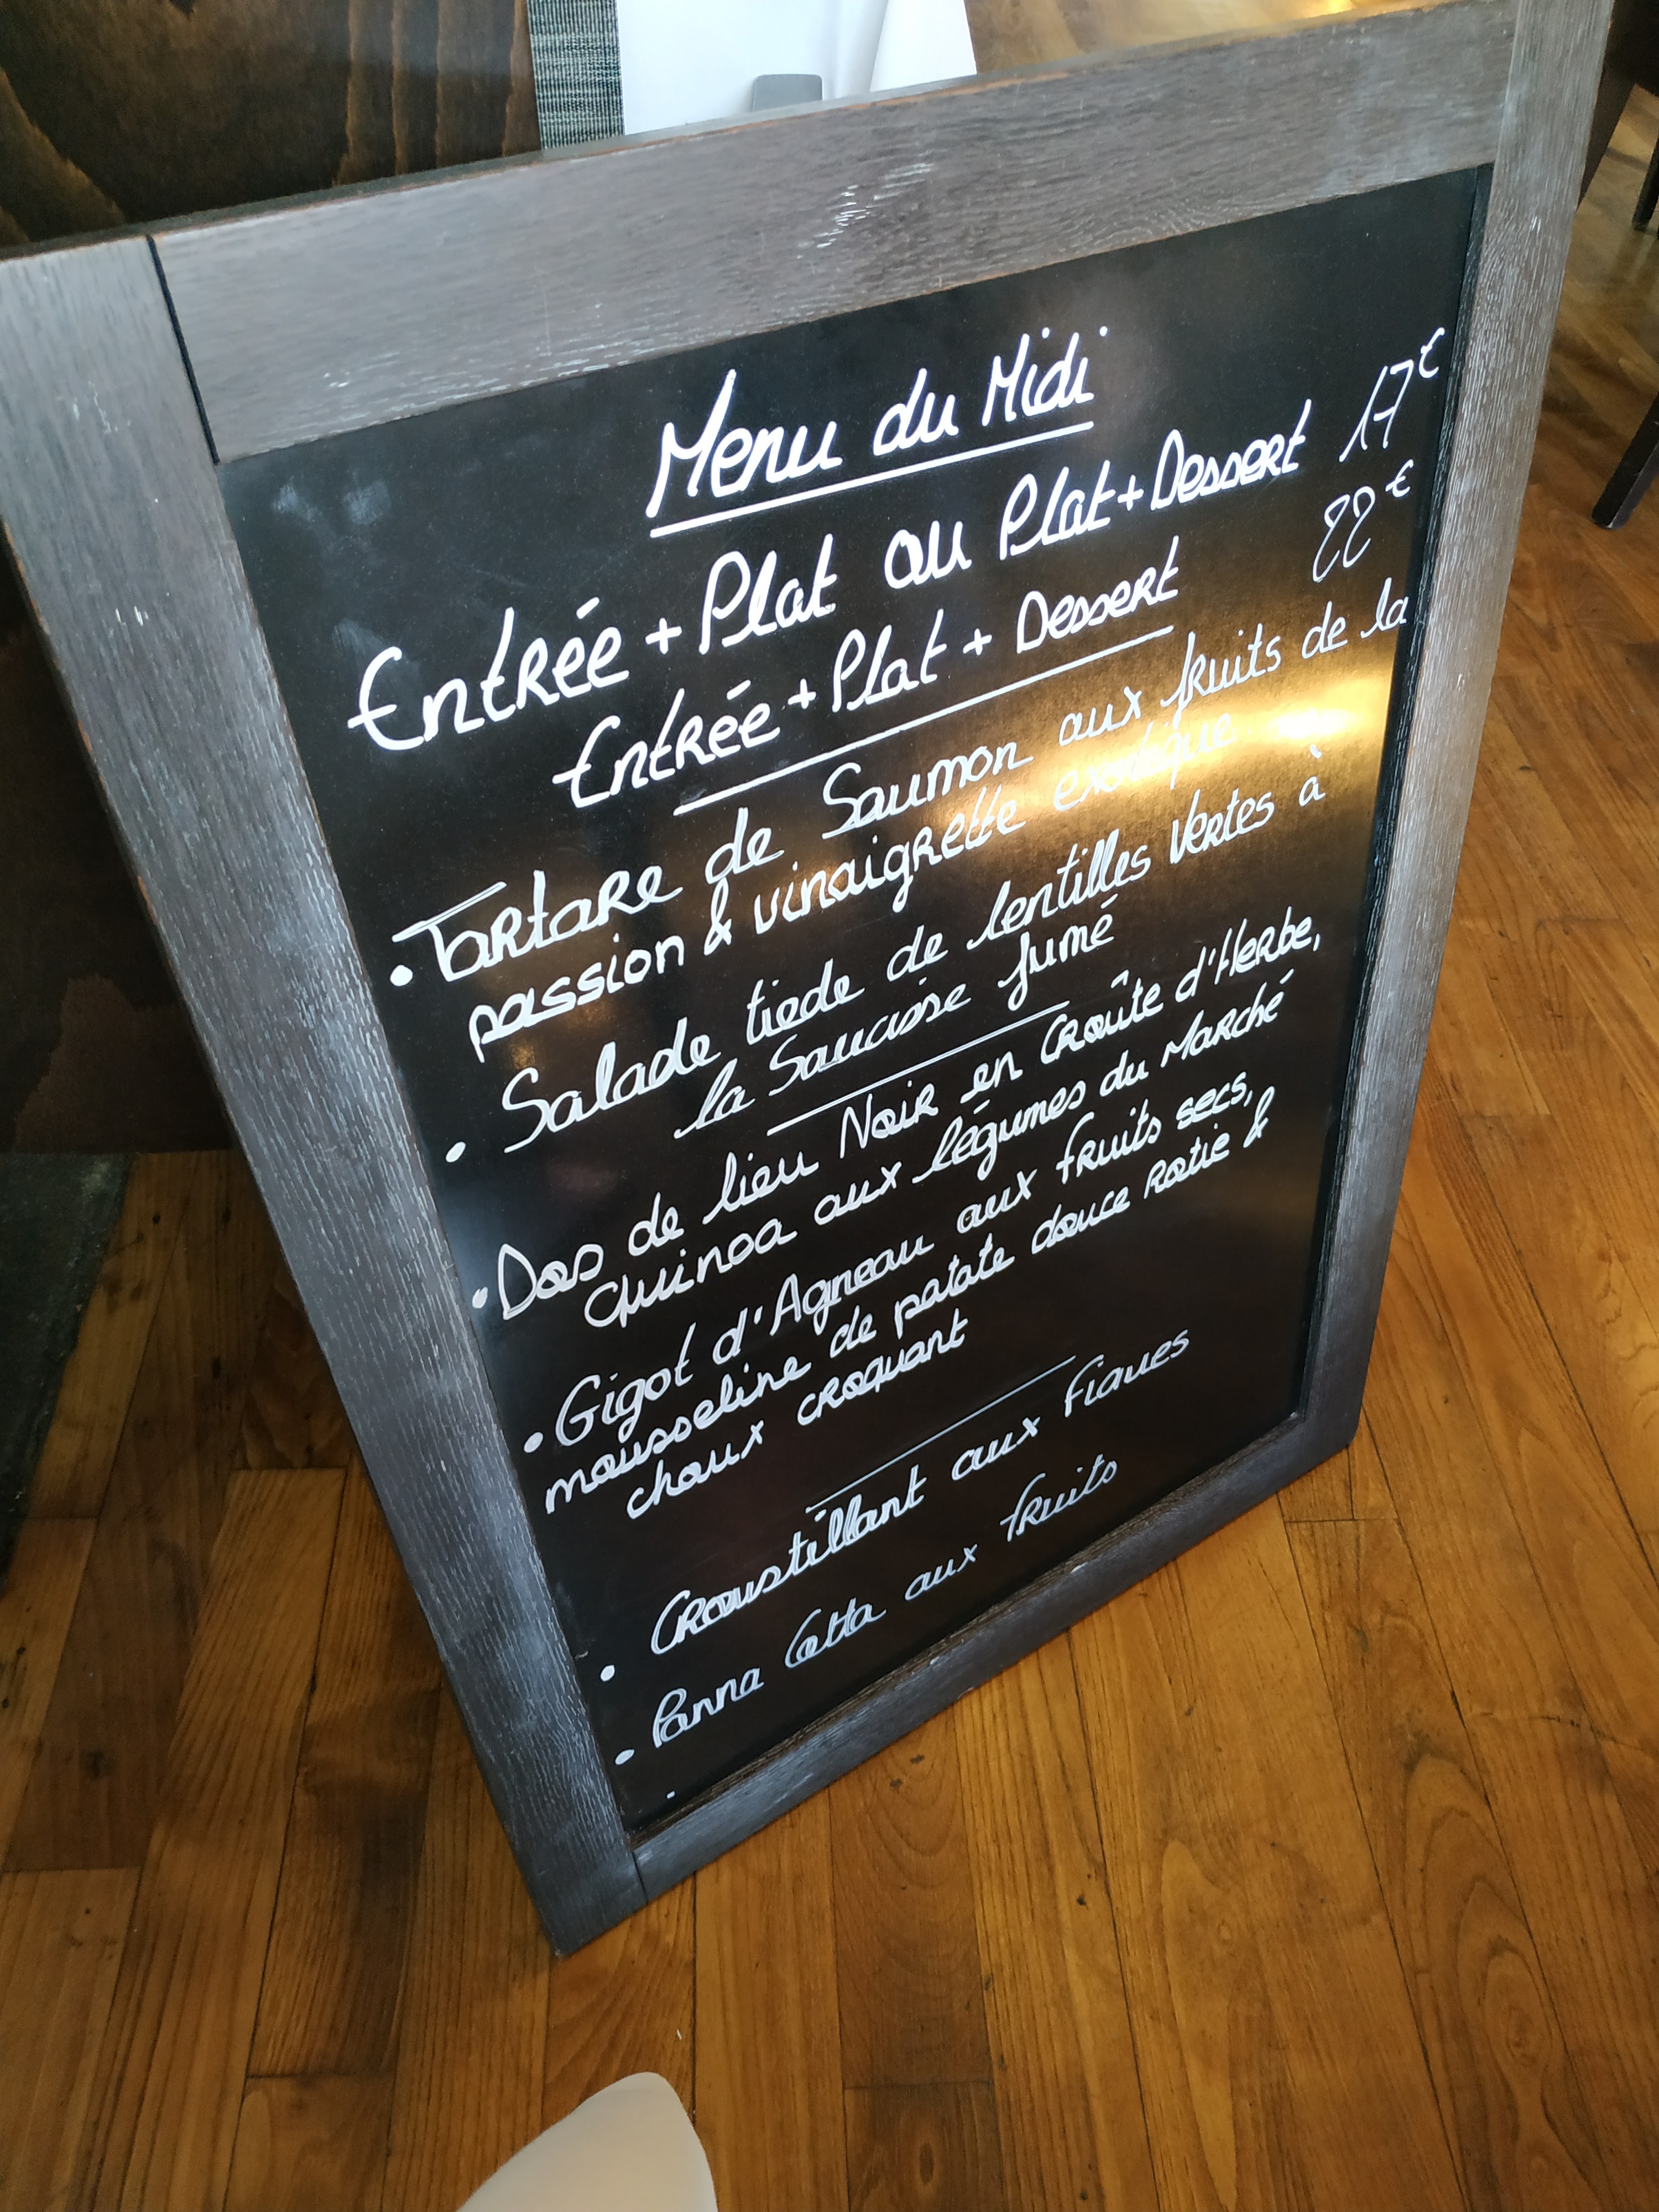 Menu du Midi
Entrée + Plat ou Plat + Dessert 17€
Entrée + Plat + Dessert 22€
• Tartare de Saumon aux fruits de la
passion & vinaigrette exotique
• Salade tiede de lentilles Vertes à
la Saucisse fumé
• Dos de lieu Noir en Croûte d'Herbe,
Quinoa aux légumes du Marché
• Gigot d'Agneau aux fruits secs,
mousseline de patate douce rotie &
choux croquant
• Croustillant aux Figues
• Panna Cotta aux fruits